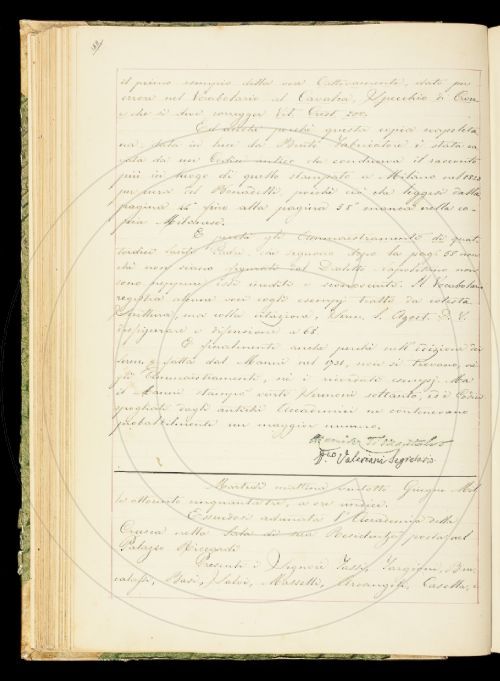 il primo esempio della voce Cattivamente, dato per
errore nel Vocabolario al Cavalca, Specchio di Croce
e che si deve correggere Vit. Crist. 200.
Ed anche perchè questa copia napoleta
na, data in luce da Bruti Fabricatore è stata ca
vata da un Codice antico che conduceva il racconto
più in lungo di quello stampato a Milano nel 1823
per cura del Benedetti, perchè ciò che leggesi dalla
pagina 42 fino alla pagina 55 manca nella co
pia Milanese.
E perchè gli Ammaestramenti di quat
tordici Santi Padri, che seguono dopo la pag. 55 ben
chè non siano segnati dal Dialetto napoletano non
sono neppure essi inediti e sconosciuti. Il Vocabolario
registra alcune voci cogli esempj tratti da cotesta
Scrittura, ma colla citazione, Serm. S. Agost. D. V.
E finalmente anche perchè nell'edizione dei
Serm. fatta dal Manni nel 1731, non si trovano, nè
gli Ammaestramenti, nè i ricordati esempj. Ma
il Manni stampò certi Sermoni soltanto, ed i Codici
spogliati dagli antichi Accademici ne contenevano
probabilmente un maggior numero.
Valeriani Segretario
Martedì mattina ventotto Giugno Mil
le ottocento cinquantatre, a ore undici.
Essendosi adunata l'Accademia della
Crusca nella Sala di sua Residenza posta nel
Palazzo Riccardi
Presenti i Signori Tassi, Targioni, Bru
calassi, Basi, Salvi, Masselli, Arcangeli, Casella,